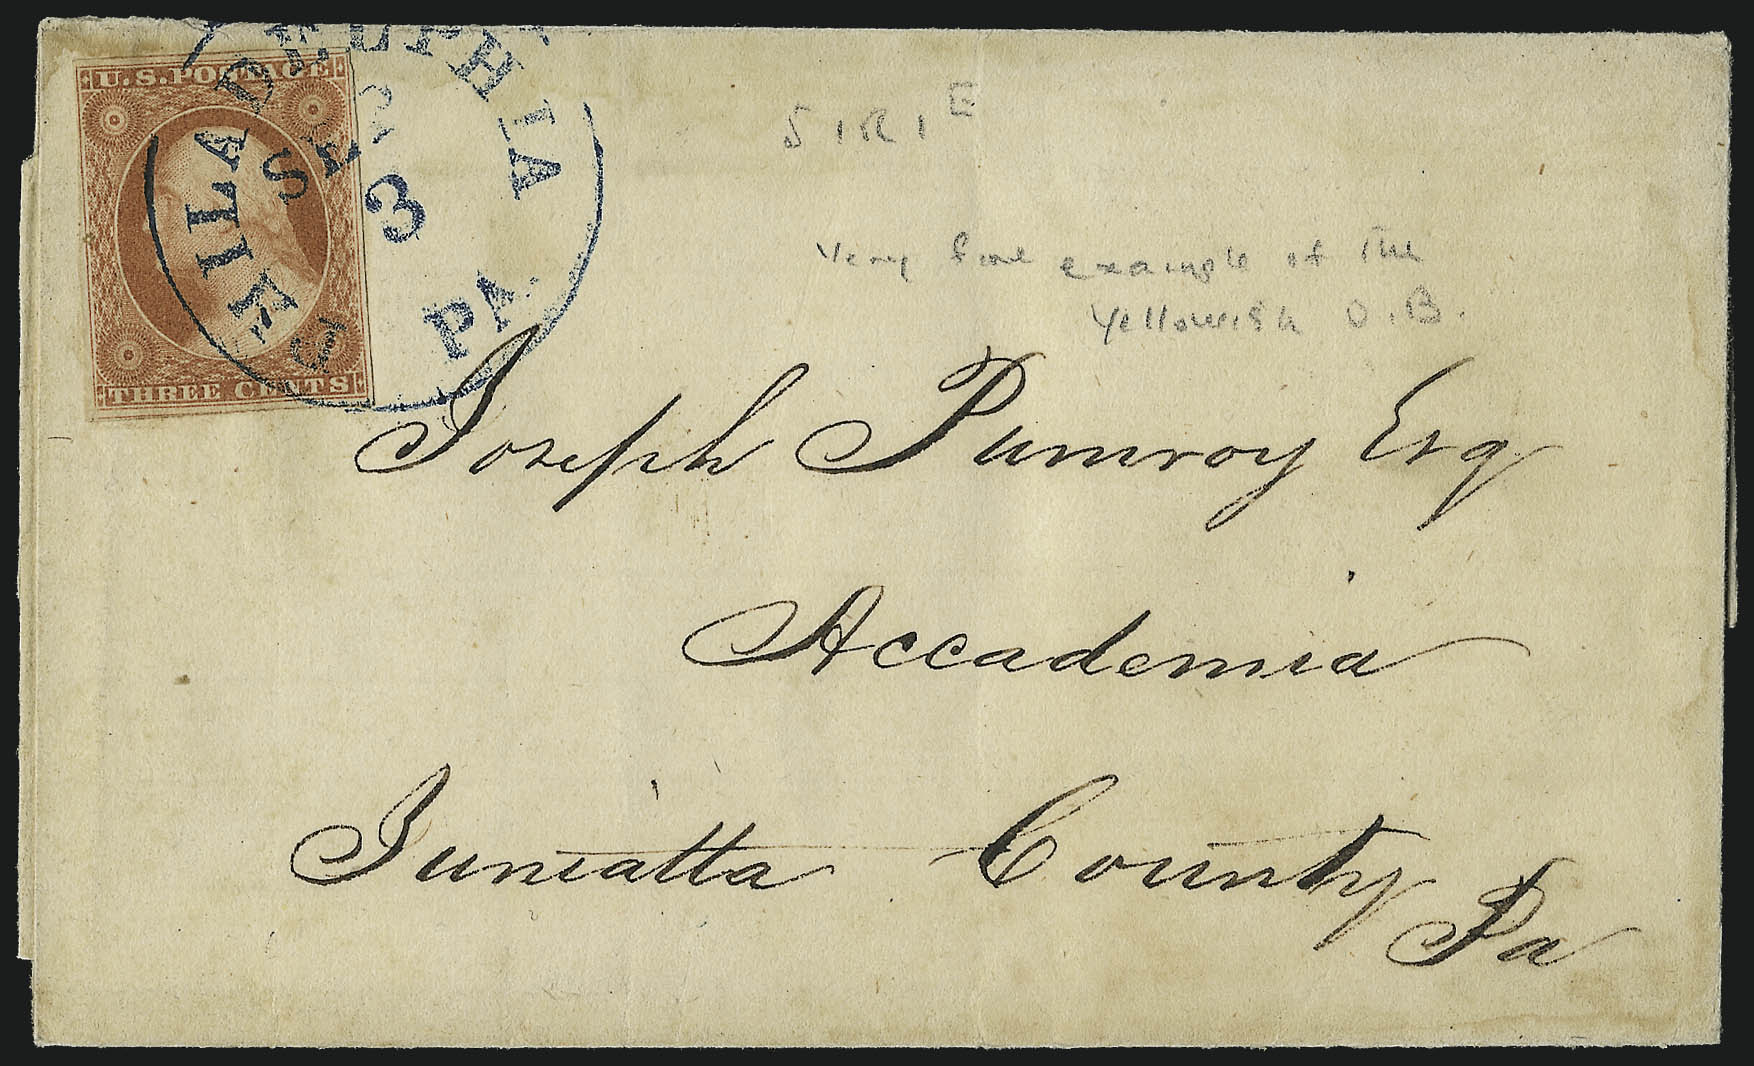 U.S. POSTAGE
THREE CENTS
PHILADELPHIA PA.
SEP
3
3
S1R1E
Very fine example of the
Yellowish O.B.
Joseph Pumroy Esq
Accademia
Juniatta County
Pa